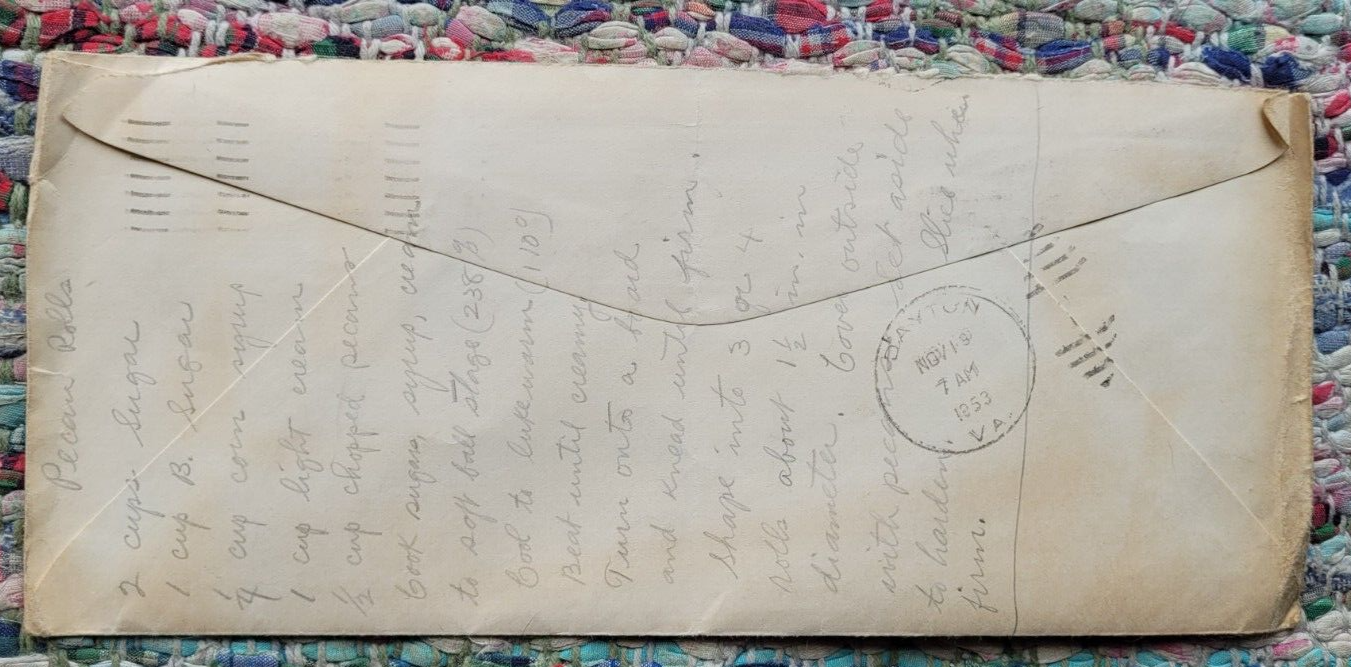 Pecan Rolls
2 cups Sugar
1 cup B. Sugar
1/4 cup corn syrup
1 cup light cream
1/2 cup chopped pecans
Cook sugars, syrup, cream
to soft ball stage (238°)
Cool to lukewarm (110°)
Beat until creamy
Turn onto a board
and knead until firm.
Shape into 3 or 4
rolls about 1 1/2 in. in
diameter. Cover outside
with pecans. Set aside
to harden. Slice when
firm.
DAYTON
NOV 18
7 AM
1953
VA.